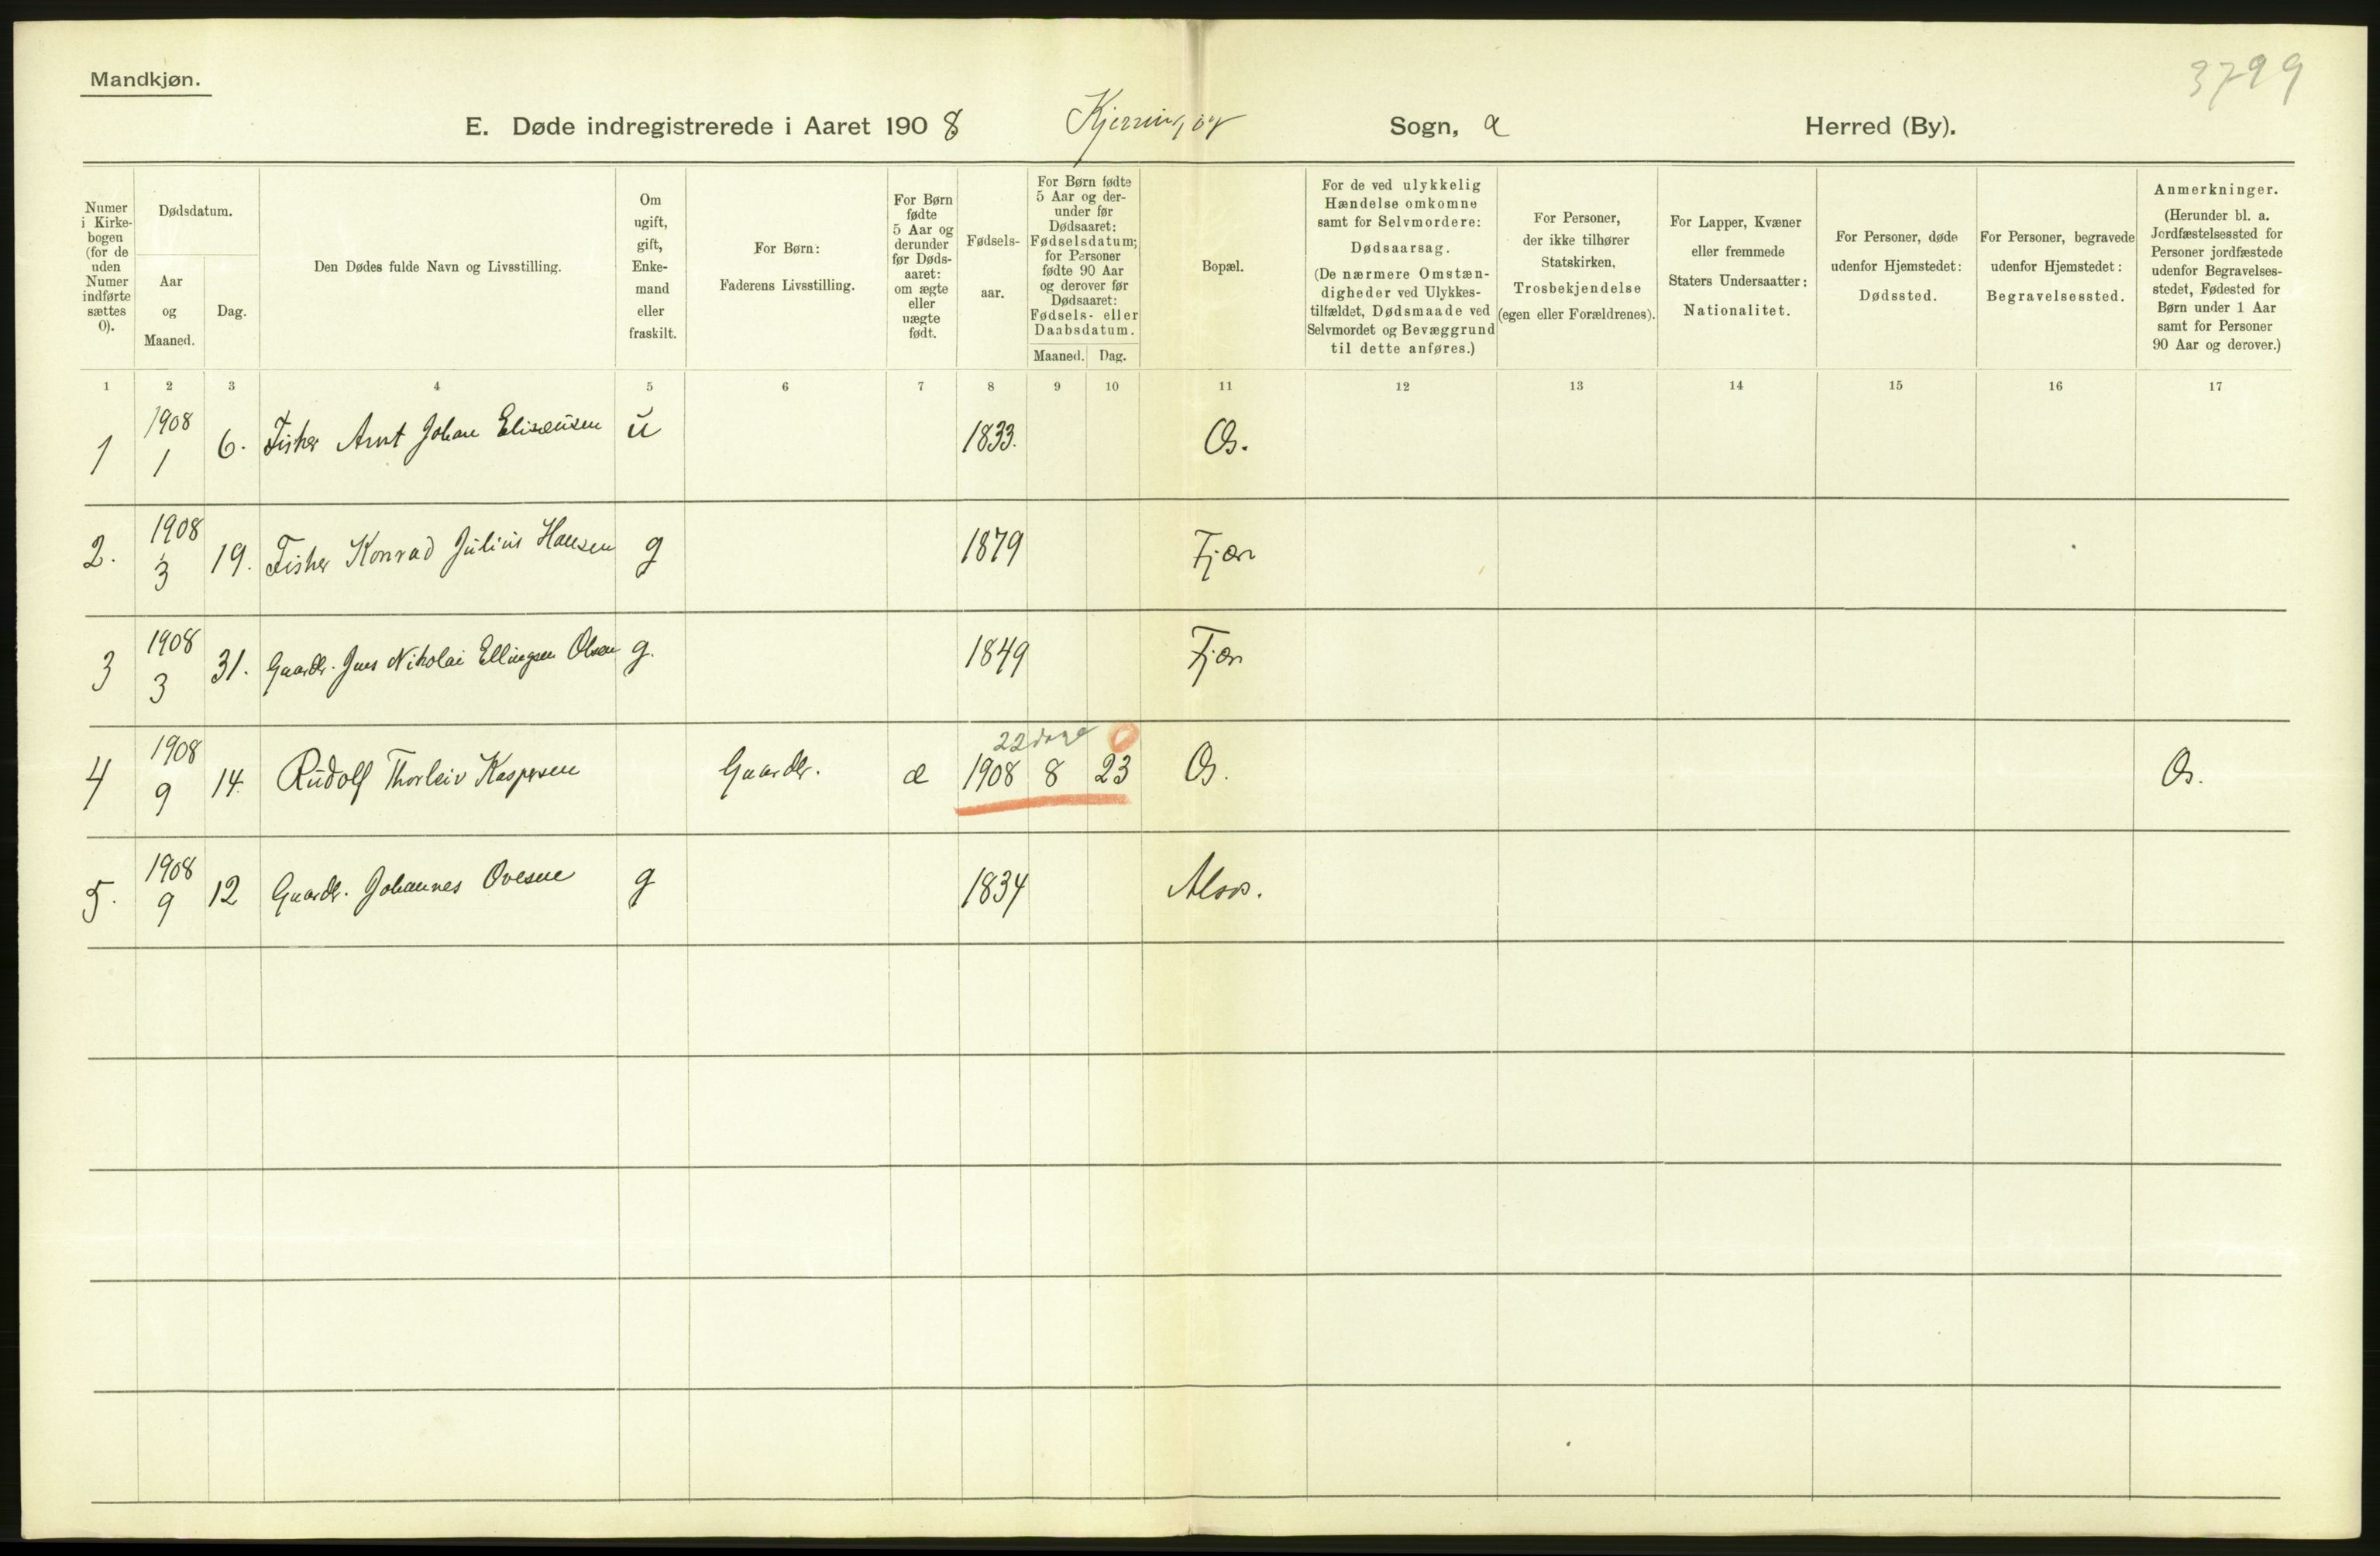 Mandkjøn.
3799
E. Døde indregistrerede i Aaret 1908 Kjerringøy Sogn, Herred (By).
Numer i Kirkebogen (for de uden Numer indførte sættes 0).
Dødsdatum.
Aar og Maaned.
Dag.
Den Dødes fulde Navn og Livsstilling.
Om ugift, gift, Enkemand eller fraskilt.
For Børn: Faderens Livsstilling.
For Børn fødte 5 Aar og derunder før Dødsaaret: om ægte eller uægte født.
Fødselsaar.
For Børn fødte 5 Aar og derunder før Dødsaaret: Fødselsdatum; for Personer fødte 90 Aar og derover før Dødsaaret: Fødsels- eller Daabsdatum.
Maaned. Dag.
Bopæl.
For de ved ulykkelig Hændelse omkomne samt for Selvmordere: Dødsaarsag. (De nærmere Omstændigheder ved Ulykkestilfældet, Dødsmaade ved Selvmordet og Bevæggrund til dette anføres.)
For Personer, der ikke tilhører Statskirken, Trosbekjendelse (egen eller Forældrenes).
For Lapper, Kvæner eller fremmede Staters Undersaatter: Nationalitet.
For Personer, døde udenfor Hjemstedet: Dødssted.
For Personer, begravede udenfor Hjemstedet: Begravelsessted.
Anmerkninger. (Herunder bl. a. Jordfæstelsessted for Personer jordfæstede udenfor Begravelsesstedet, Fødested for Børn under 1 Aar samt for Personer 90 Aar og derover.)
1 2 3 4 5 6 7 8 9 10 11 12 13 14 15 16 17
1 1908 1 6. Fisker Arnt Johan Eliseusen u 1833. Os.
2. 1908 3 19. Fisker Konrad Julius Hansen g 1879 Fjær
3 1908 3 31. Gaardbr. Jens Nikolai Ellingsen Olsen g. 1849 Fjær
22 dage 0
4 1908 9 14. Rudolf Thorleiv Kaspersen Gaardbr. æ 1908 8 23 Os. Os.
5. 1908 9 12 Gaardbr. Johannes Ovesen g 1834 Alsos.